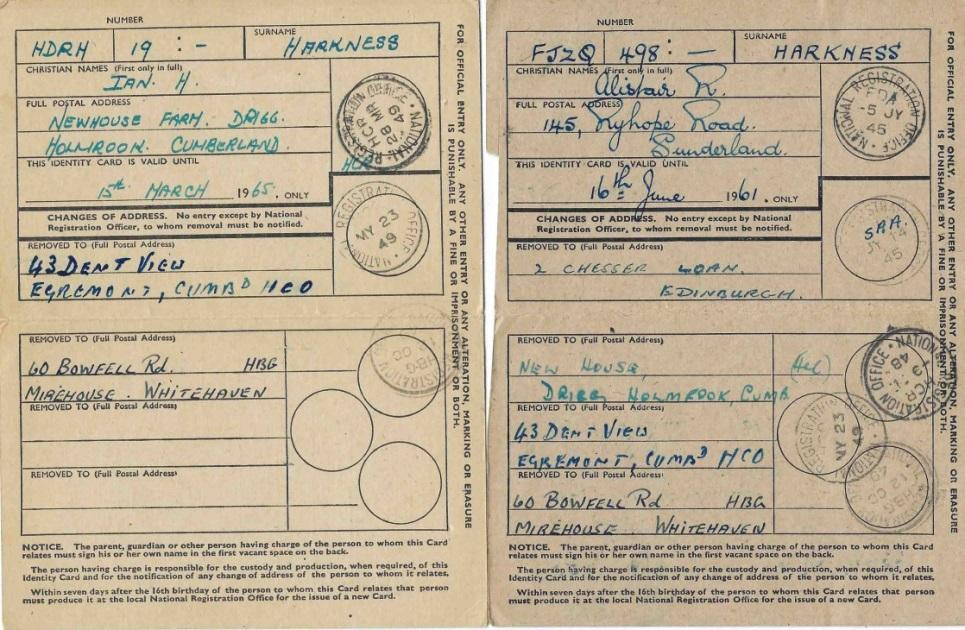 NUMBER
HDRH 19 : -
SURNAME
HARKNESS
CHRISTIAN NAMES (First only in full)
IAN. H
FULL POSTAL ADDRESS
NEWHOUSE FARM. DRIGG.
HOLMROOK. CUMBERLAND.
THIS IDENTITY CARD IS VALID UNTIL
15th MARCH 1965. ONLY
NATIONAL REGISTRATION OFFICE
HCR
28 MR
49
CHANGES OF ADDRESS. No entry except by National
Registration Officer, to whom removal must be notified.
REGISTRATION OFFICE
MY 23
49
REMOVED TO (Full Postal Address)
43 DENT VIEW
EGREMONT, CUMBD HCO
REMOVED TO (Full Postal Address)
60 BOWFELL Rd. HBG
MIREHOUSE. WHITEHAVEN
REMOVED TO (Full Postal Address)
REMOVED TO (Full Postal Address)
FOR OFFICIAL ENTRY ONLY. ANY OTHER ENTRY OR ANY ALTERATION, MARKING OR ERASURE
IS PUNISHABLE BY A FINE OR IMPRISONMENT OR BOTH.
NOTICE. The parent, guardian or other person having charge of the person to whom this Card
relates must sign his or her own name in the first vacant space on the back.
The person having charge is responsible for the custody and production, when required, of this
Identity Card and for the notification of any change of address of the person to whom it relates.
Within seven days after the 16th birthday of the person to whom this Card relates that person
must produce it at the local National Registration Office for the issue of a new Card.
NUMBER
FJZQ 498 : -
SURNAME
HARKNESS
CHRISTIAN NAMES (First only in full)
Alistair R.
FULL POSTAL ADDRESS
145, Ryhope Road.
Sunderland.
THIS IDENTITY CARD IS VALID UNTIL
16th June 1961. ONLY
NATIONAL REGISTRATION OFFICE
FDA
-5 JY
45
CHANGES OF ADDRESS. No entry except by National
Registration Officer, to whom removal must be notified.
SAA
45
REMOVED TO (Full Postal Address)
2 CHESSER LOAN.
EDINBURGH.
REMOVED TO (Full Postal Address)
NEW HOUSE,
DRIGG, HOLMEROK, CUMB
REMOVED TO (Full Postal Address)
43 DENT VIEW
EGREMONT, CUMBD HCO
REMOVED TO (Full Postal Address)
60 BOWFELL Rd HBG
MIREHOUSE WHITEHAVEN
MY 23
49
FOR OFFICIAL ENTRY ONLY. ANY OTHER ENTRY OR ANY ALTERATION, MARKING OR ERASURE
IS PUNISHABLE BY A FINE OR IMPRISONMENT OR BOTH.
NOTICE. The parent, guardian or other person having charge of the person to whom this Card
relates must sign his or her own name in the first vacant space on the back.
The person having charge is responsible for the custody and production, when required, of this
Identity Card and for the notification of any change of address of the person to whom it relates.
Within seven days after the 16th birthday of the person to whom this Card relates that person
must produce it at the local National Registration Office for the issue of a new Card.